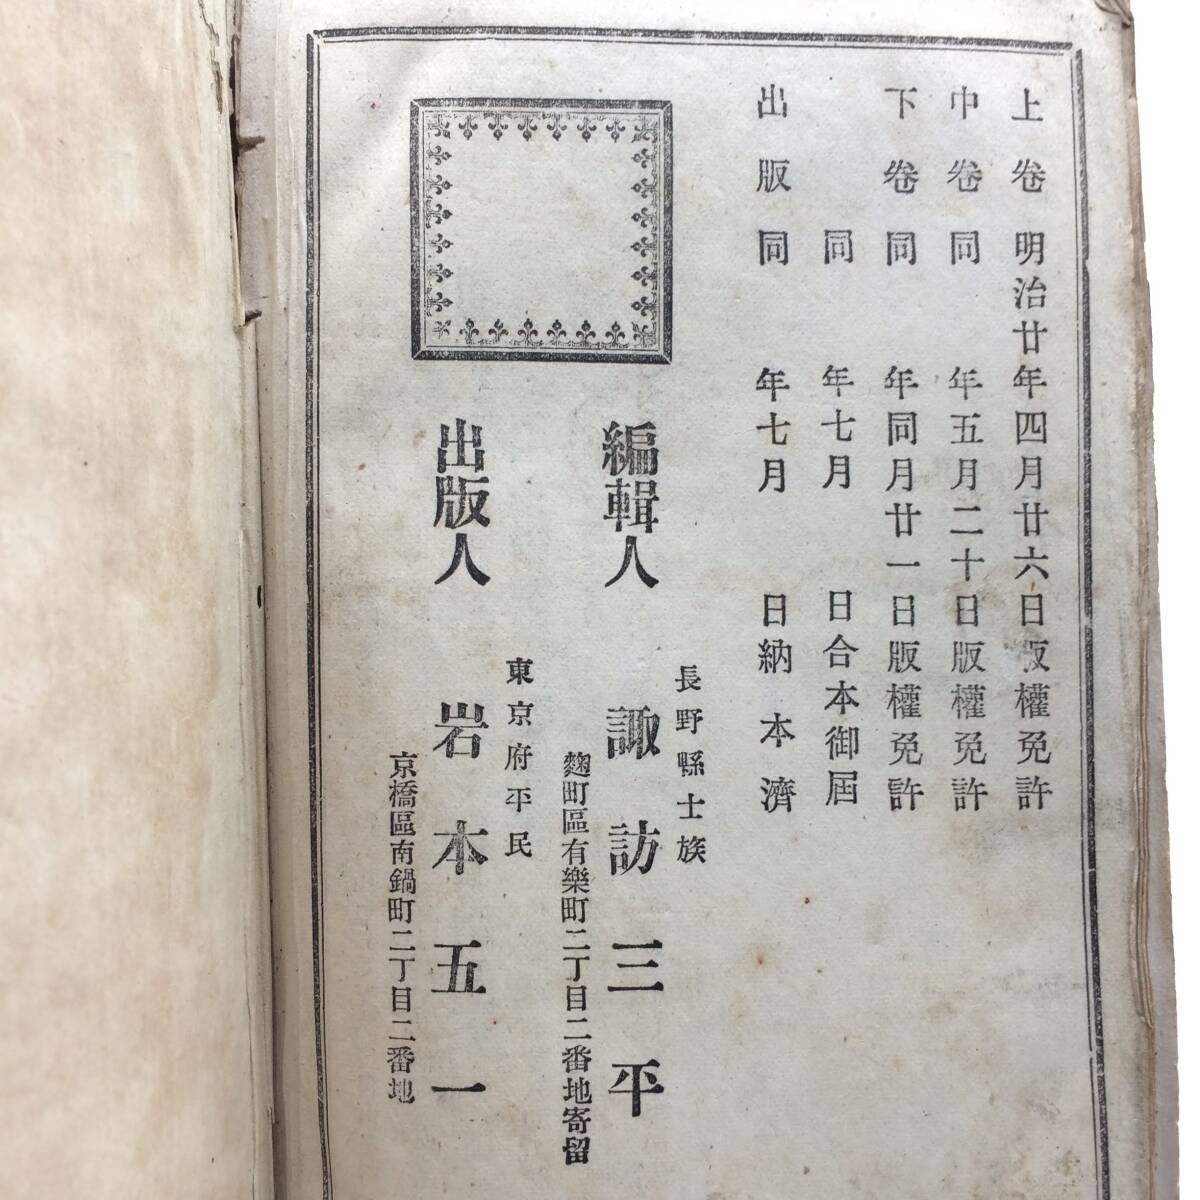 上卷 明治廿年四月廿六日版權免許
中卷同 年五月二十日版權免許
下卷同 年同月廿一日版權免許
同 年七月 日合本御屆
出版同 年七月 日納本濟
長野縣士族
編輯人 諏訪三平
麴町區有樂町二丁目二番地寄留
東京府平民
出版人 岩本五一
京橋區南鍋町二丁目二番地